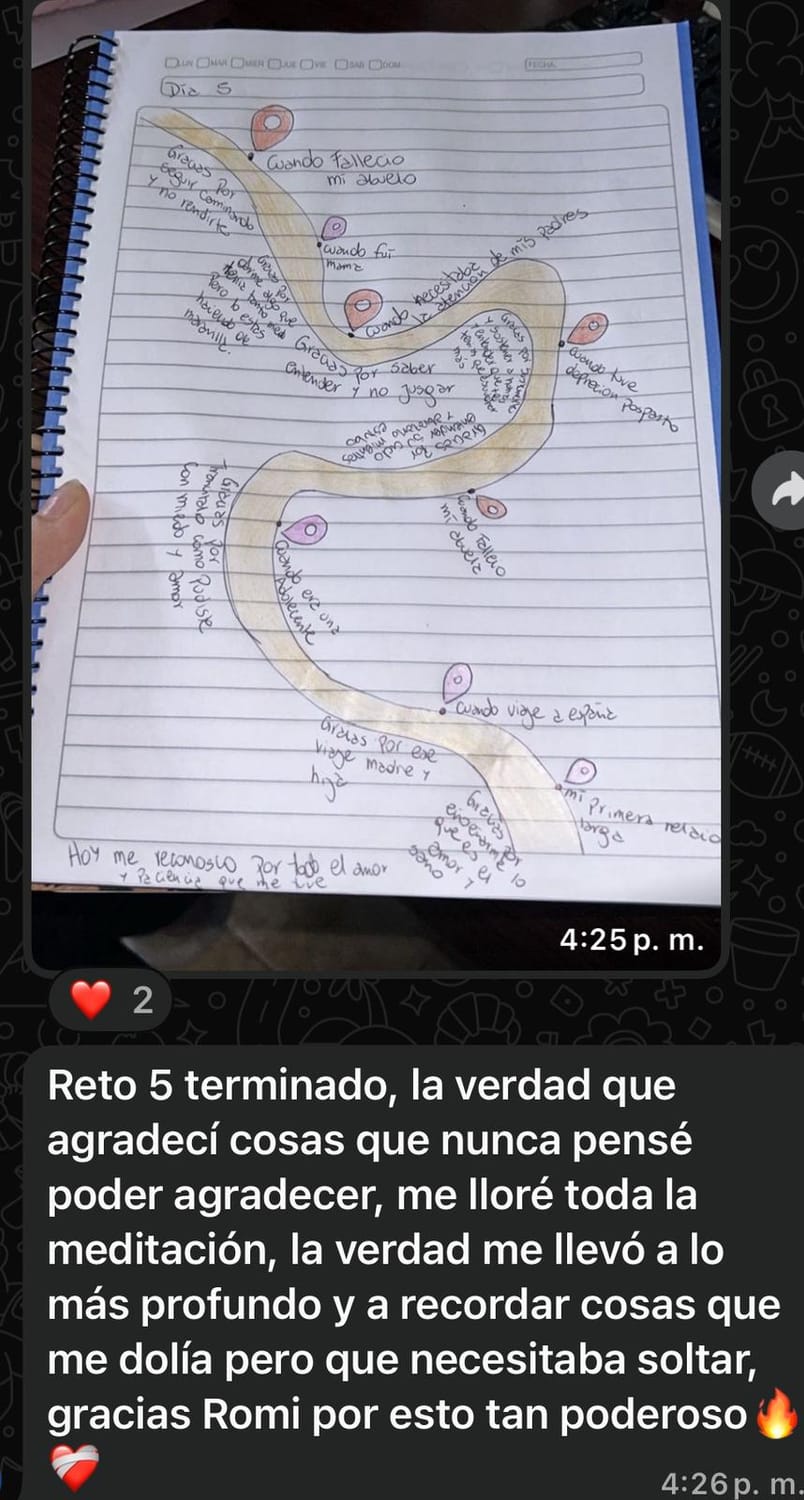 LUN MAR MIER JUE VIE SAB DOM
FECHA
Día 5
Cuando fallecio
mi abuelo
Gracias por
seguir caminando
y no rendirte
cuando fui
mama
Gracias por
darme algo que
tenia tanto miedo
Pero lo estas
haciendo de
maravilla.
Cuando necesitaba
la atención de mis padres
Gracias por saber
entender y no jusgar
Cuando tuve
depresion posparto
Gracias por
y sostener a
y entender que
más
Cuando fallecio
mi abuela
Gracias por
Cuando era una
Adolecente
Gracias por
como pudiste
con miedo y amor
Cuando viaje a españa
Gracias por ese
viage madre y
hija
mi primera relacio
larga
Gracias por
enseñarme lo
que es el
amor y
sano
Hoy me reconosco por todo el amor
y paciencia que me tuve
4:25 p. m.
2
Reto 5 terminado, la verdad que
agradecí cosas que nunca pensé
poder agradecer, me lloré toda la
meditación, la verdad me llevó a lo
más profundo y a recordar cosas que
me dolía pero que necesitaba soltar,
gracias Romi por esto tan poderoso🔥
❤️‍🩹
4:26 p. m.